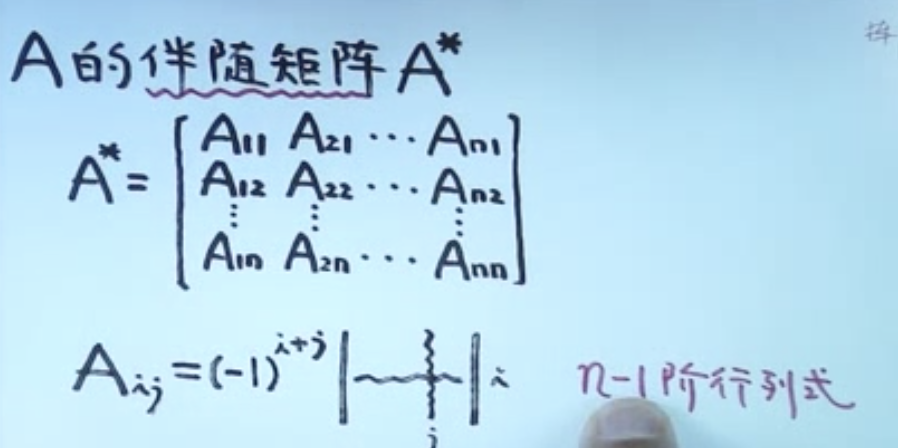 A的伴随矩阵A*
A* = [A₁₁ A₂₁ ⋯ Aₙ₁
A₁₂ A₂₂ ⋯ Aₙ₂
⋮ ⋮ ⋮
A₁ₙ A₂ₙ ⋯ Aₙₙ]
Aᵢⱼ = (-1)^{i+j} | | i n-1阶行列式
j